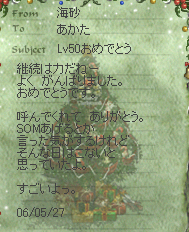 From 海砂
To あかた
Subject Lv50おめでとう
継続は力だね～
よく がんばりました。
おめでとうです。
呼んでくれて ありがとう。
SOMあげるとか
言った気がするけれど
そんな日はこないと
思っていたよ。
すごいよっ。
06/05/27